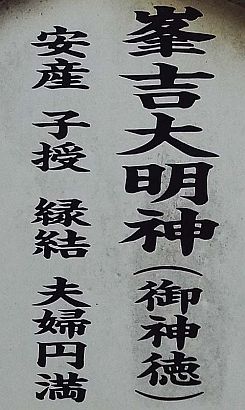 峯吉大明神(御神徳)
安産 子授 縁結 夫婦円満